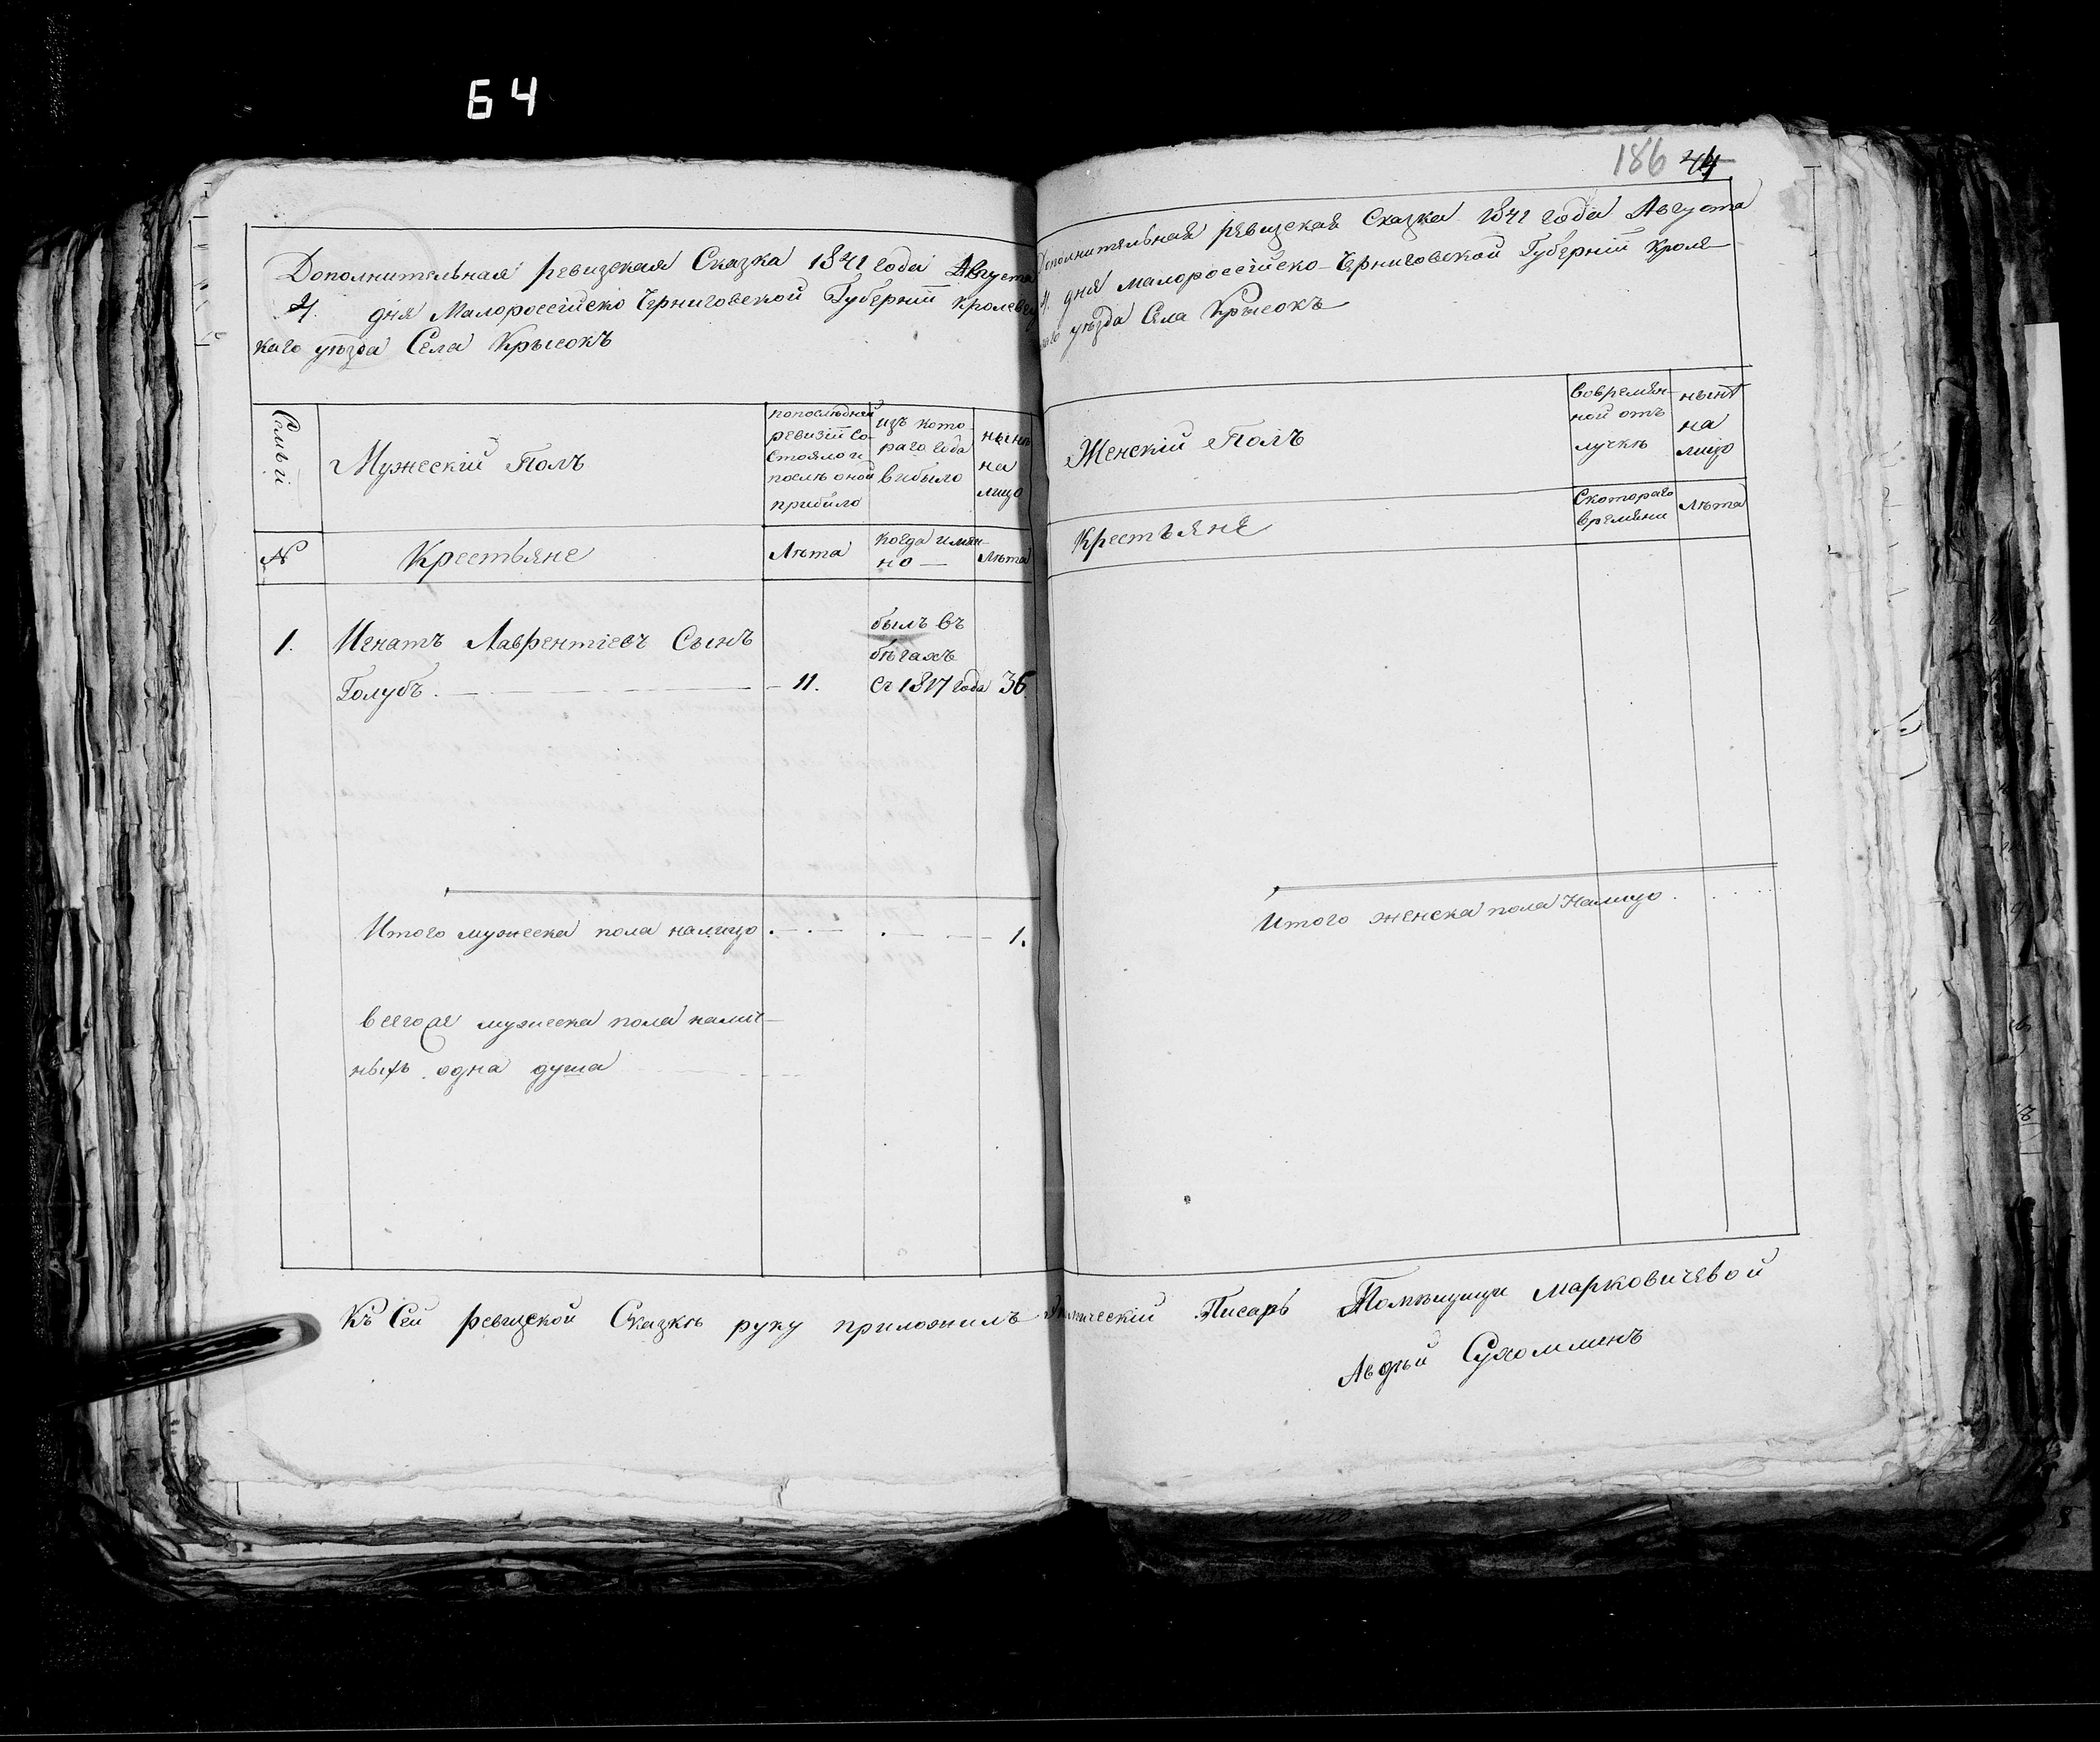 64
186 44
Дополнительная ревизская Сказка 1841 года Августа
4. дня Малороссійско Черниговской Губерніи Кролевец
каго уѣзда Села Крысокъ
Семьи
Мужескій Полъ
попослѣдней
ревизіи со-
стояло и
послѣ оной
прибыло
изъ кото
раго года
выбыло
нынѣ
на
лицо
№
Крестьяне
Лѣта
когда имян-
но
Лѣта
1. Игнатъ Лаврентіевъ Сынъ
Голубъ. 11.
былъ въ
бѣгахъ
съ 1817 года 36.
Итого мужеска пола налицо 1.
всего же мужеска пола налич-
ныхъ одна душа
Дополнительная ревизская Сказка 1841 года Августа
4. дня Малороссійско-Черниговской Губерніи Кроле
уѣзда Села Крысокъ
Женскій Полъ
вовремян-
ной отъ
лучкѣ
нынѣ
на
лицо
Крестьяне
Скотораго
времяни
Лѣта
Итого женска пола Налицо
Къ Сей ревизской Сказкѣ руку приложилъ Писарь Помѣщици Марковичевой
Авдѣй Сухомлинъ